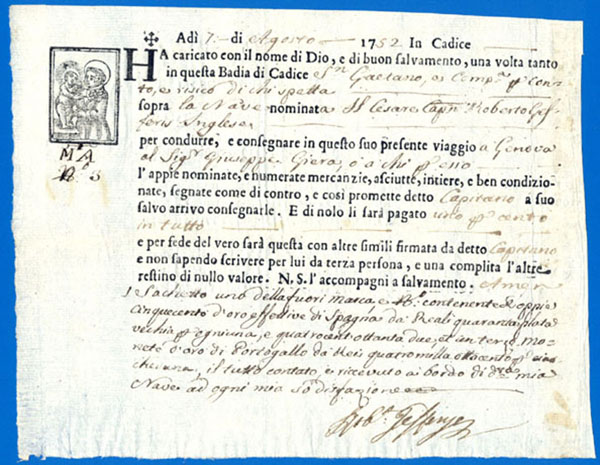 ✠ Adì 7: di Agosto 1752 In Cadice
HA caricato con il nome di Dio, e di buon salvamento, una volta tanto
in questa Badia di Cadice Sn Gaetano, e Compa. p conto,
to, e risico di chi spetta
sopra la Nave nominata Il Cesare Capn. Roberto Gef
feris Inglese
per condurre, e consegnare in questo suo presente viaggio a Genova
al Sigr. Giuseppe Giera, o a chi p esso
l'appie nominate, e numerate mercanzie, asciutte, intiere, e ben condizio-
nate, segnate come di contro, e così promette detto Capitano a suo
salvo arrivo consegnarle. E di nolo li sarà pagato uno p cento
in tutto
e per fede del vero sarà questa con altre simili firmata da detto Capitano
e non sapendo scrivere per lui da terza persona, e una complita l'altre
restino di nullo valore. N.S. l'accompagni a salvamento. Amen
1 Sachetto uno della fuori marca e No. contenente doppie
cinquecento d'oro effettive di Spagna da Reali quaranta plata
vechia p ogniuna, e quatrocentottanta due, et un terzo mo-
nete d'oro di Portogallo da Reis quatromilla ottocento p
cheuna, il tutto contato, e ricevuto a bordo di dta mia
Nave ad ogni mia sodisfazione
MA
No 3